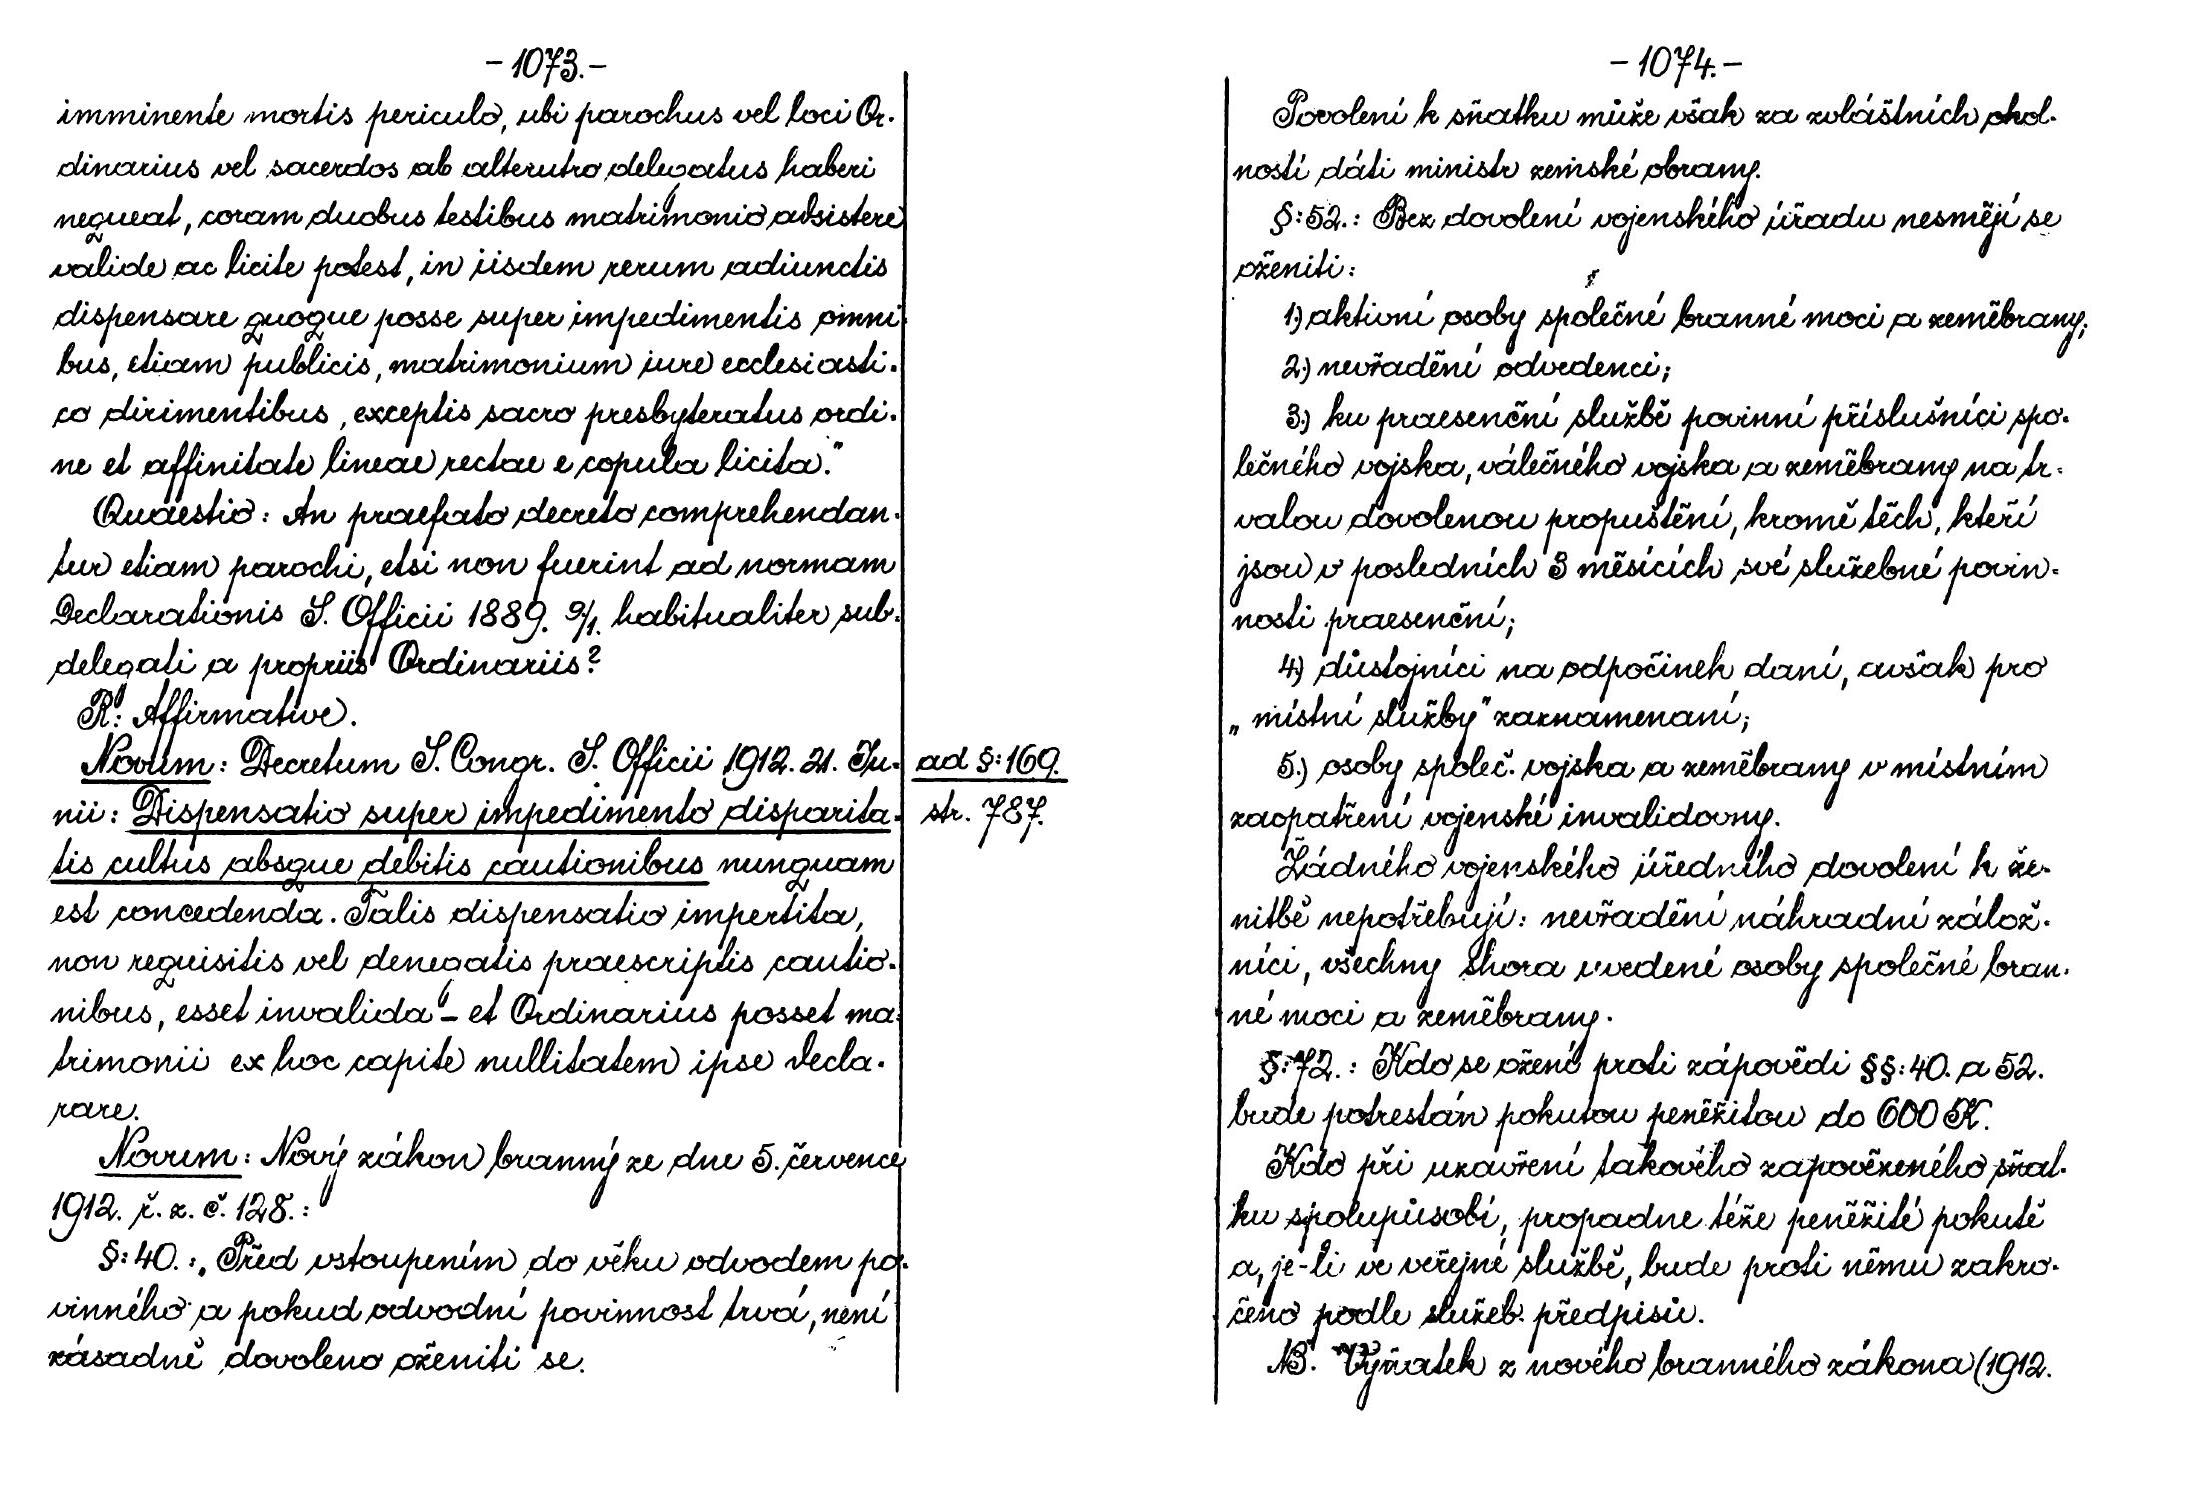 - 1073. -
imminente mortis periculo, ubi parochus vel loci Or-
dinarius vel sacerdos ab alterutro delegatus haberi
nequeat, coram duobus testibus matrimonio adsistere
valide ac licite potest, in iisdem rerum adiunctis
dispensare quoque posse super impedimentis omni-
bus, etiam publicis, matrimonium iure ecclesiasti-
co dirimentibus, exceptis sacro presbyteratus ordi-
ne et affinitate lineae rectae e copula licita."
Quaestio: An praefato decreto comprehendan-
tur etiam parochi, etsi non fuerint ad normam
Declarationis S. Officii 1889. 9/1. habitualiter sub-
delegati a propriis Ordinariis?
R: Affirmative.
Novum: Decretum S. Congr. S. Officii 1912. 21. Ju-
nii: Dispensatio super impedimento disparita-
tis cultus absque debitis cautionibus nunquam
est concedenda. Talis dispensatio impertita,
non requisitis vel denegatis praescriptis cautio-
nibus, esset invalida - et Ordinarius posset ma-
trimonii ex hoc capite nullitatem ipse decla-
rare.
Novum: Nový zákon branný ze dne 5. července
1912. ř. z. č. 128.:
§: 40.: „Před vstoupením do věku odvodem po-
vinného a pokud odvodní povinnost trvá, není
zásadně dovoleno oženiti se.
ad §: 169.
str. 787.
- 1074. -
Povolení k sňatku může však za zvláštních okol-
ností dáti ministr zemské obrany.
§: 52.: Bez dovolení vojenského úřadu nesmějí se
oženiti:
1.) aktivní osoby společné branné moci a zeměbrany;
2.) nevřadění odvedenci;
3.) ku praesenční službě povinní příslušníci spo-
lečného vojska, válečného vojska a zeměbrany na tr-
valou dovolenou propuštění, kromě těch, kteří
jsou v posledních 3 měsících své služebné povin-
nosti praesenční;
4.) důstojníci na odpočinek daní, avšak pro
„místní služby" zaznamenaní;
5.) osoby společ. vojska a zeměbrany v místním
zaopatření vojenské invalidovny.
Žádného vojenského úředního dovolení k že-
nitbě nepotřebují: nevřadění náhradní zálož-
níci, všechny shora uvedené osoby společné bran-
né moci a zeměbrany.
§: 72.: Kdo se ožení proti zápovědi §§: 40. a 52.
bude potrestán pokutou peněžitou do 600 K.
Kdo při uzavření takového zapovězeného sňat-
ku spolupůsobí, propadne téže peněžité pokutě
a, je-li ve veřejné službě, bude proti němu zakro-
čeno podle služeb. předpisů.
NB. Výňatek z nového branného zákona (1912.